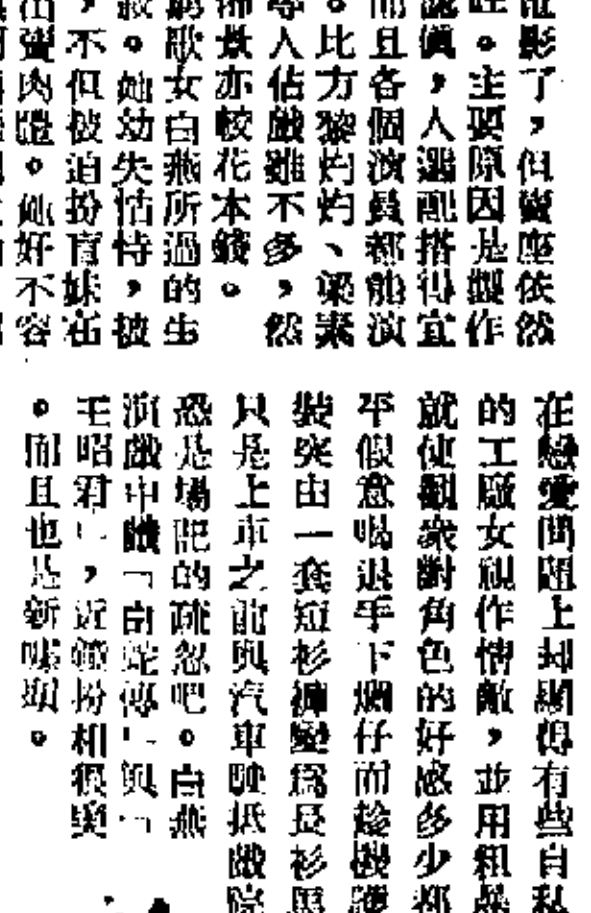 影了，但賣座依然
旺。主要原因是製作
認真，人選配搭得宜
而且各個演員都能演
。比方黎灼灼、梁素
等人佔戲雖不多，然
佈景亦較花本錢。
窮歌女白燕所過的生
。她幼失怙恃，被
，不但被迫扮盲妹在
出賣肉體。她好不容
在戀愛問題上却顯得有些自私
的工廠女視作情敵，並用粗暴
就使觀衆對角色的好感多少都
平假意喝退手下爛仔而趁機護
裝突由一套短衫褲變爲長衫馬
只是上車之前與汽車駛抵戲院
恐是場記的疏忽吧。白燕
演戲中戲「白蛇傳」與「
王昭君」，近鏡扮相很美
。而且也是新噱頭。